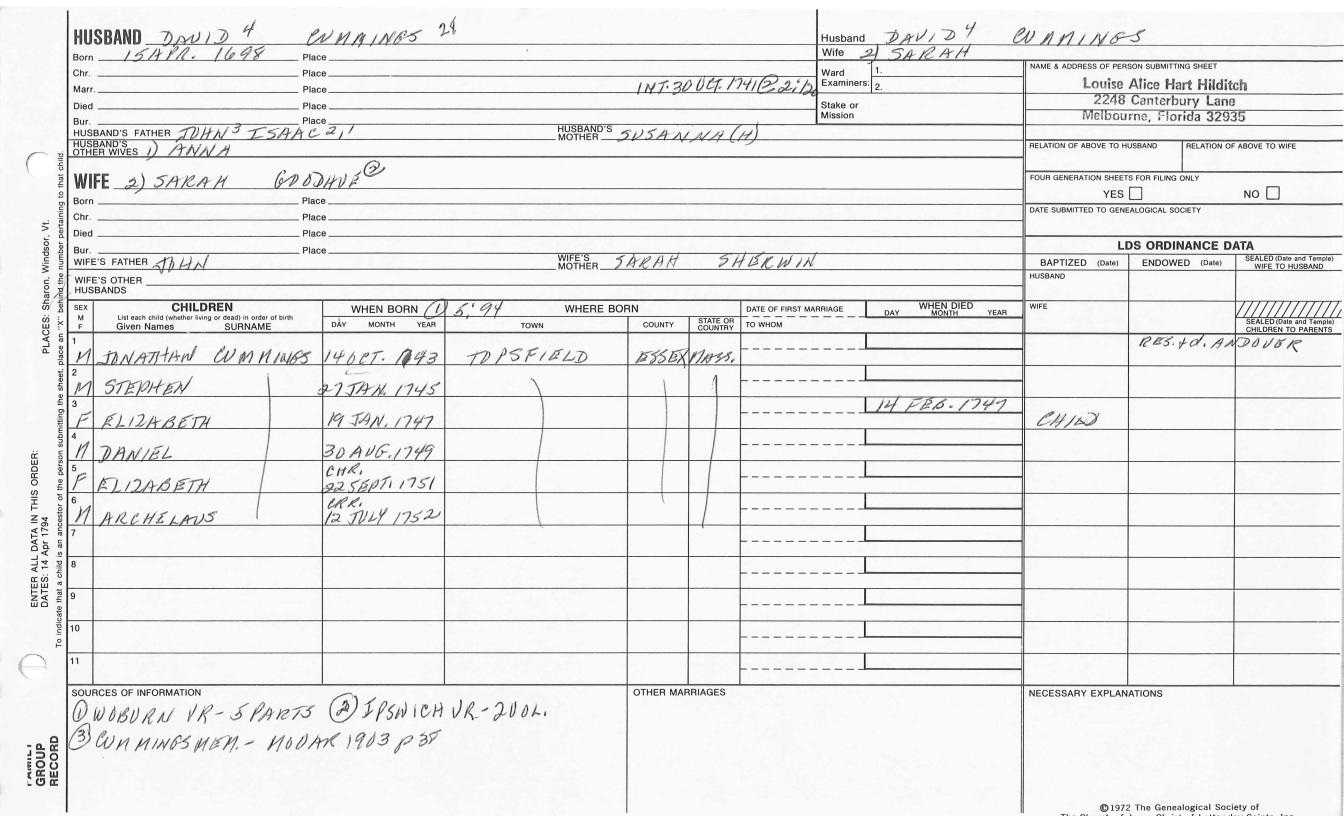 HUSBAND DAVID 4 CUMMINGS
Born 15 APR. 1698 Place
Chr. Place
Marr. Place INT. 30 OCT. 1741
Died Place
Bur. Place
HUSBAND'S FATHER JOHN 3 ISAAC 2,1 HUSBAND'S MOTHER SUSANNA (H)
HUSBAND'S OTHER WIVES 1) ANNA
Husband DAVID 4 CUMMINGS
Wife 2) SARAH
Ward Examiners: 1.
2.
Stake or Mission
NAME & ADDRESS OF PERSON SUBMITTING SHEET
Louise Alice Hart Hilditch
2248 Canterbury Lane
Melbourne, Florida 32935
RELATION OF ABOVE TO HUSBAND RELATION OF ABOVE TO WIFE
FOUR GENERATION SHEETS FOR FILING ONLY
YES NO
DATE SUBMITTED TO GENEALOGICAL SOCIETY
WIFE 2) SARAH GOODHUE ②
Born Place
Chr. Place
Died Place
Bur. Place
WIFE'S FATHER JOHN WIFE'S MOTHER SARAH SHERWIN
WIFE'S OTHER HUSBANDS
LDS ORDINANCE DATA
BAPTIZED (Date) ENDOWED (Date) SEALED (Date and Temple) WIFE TO HUSBAND
HUSBAND
WIFE
SEALED (Date and Temple) CHILDREN TO PARENTS
SEX M F CHILDREN WHEN BORN ① 5:94 WHERE BORN DATE OF FIRST MARRIAGE WHEN DIED
List each child (whether living or dead) in order of birth
Given Names SURNAME DAY MONTH YEAR TOWN COUNTY STATE OR COUNTRY TO WHOM DAY MONTH YEAR
1 M JONATHAN CUMMINGS 14 OCT. 1743 TOPSFIELD ESSEX MASS. RES. + d. ANDOVER
2 M STEPHEN 27 JAN. 1745
3 F ELIZABETH 19 JAN. 1747 14 FEB. 1747 CHILD
4 M DANIEL 30 AUG. 1749
5 F ELIZABETH CHR. 22 SEPT. 1751
6 M ARCHELAUS CHR. 12 JULY 1752
7
8
9
10
11
SOURCES OF INFORMATION
① WOBURN VR - 5 PARTS ② IPSWICH VR - 2 VOL.
③ CUMMINGS MEM. - MOOAR 1903
OTHER MARRIAGES
NECESSARY EXPLANATIONS
©1972 The Genealogical Society of
FAMILY GROUP RECORD
ENTER ALL DATA IN THIS ORDER:
DATES: 14 Apr 1794
PLACES: Sharon, Windsor, Vt.
To indicate that a child is an ancestor of the person submitting the sheet, place an "X" behind the number pertaining to that child